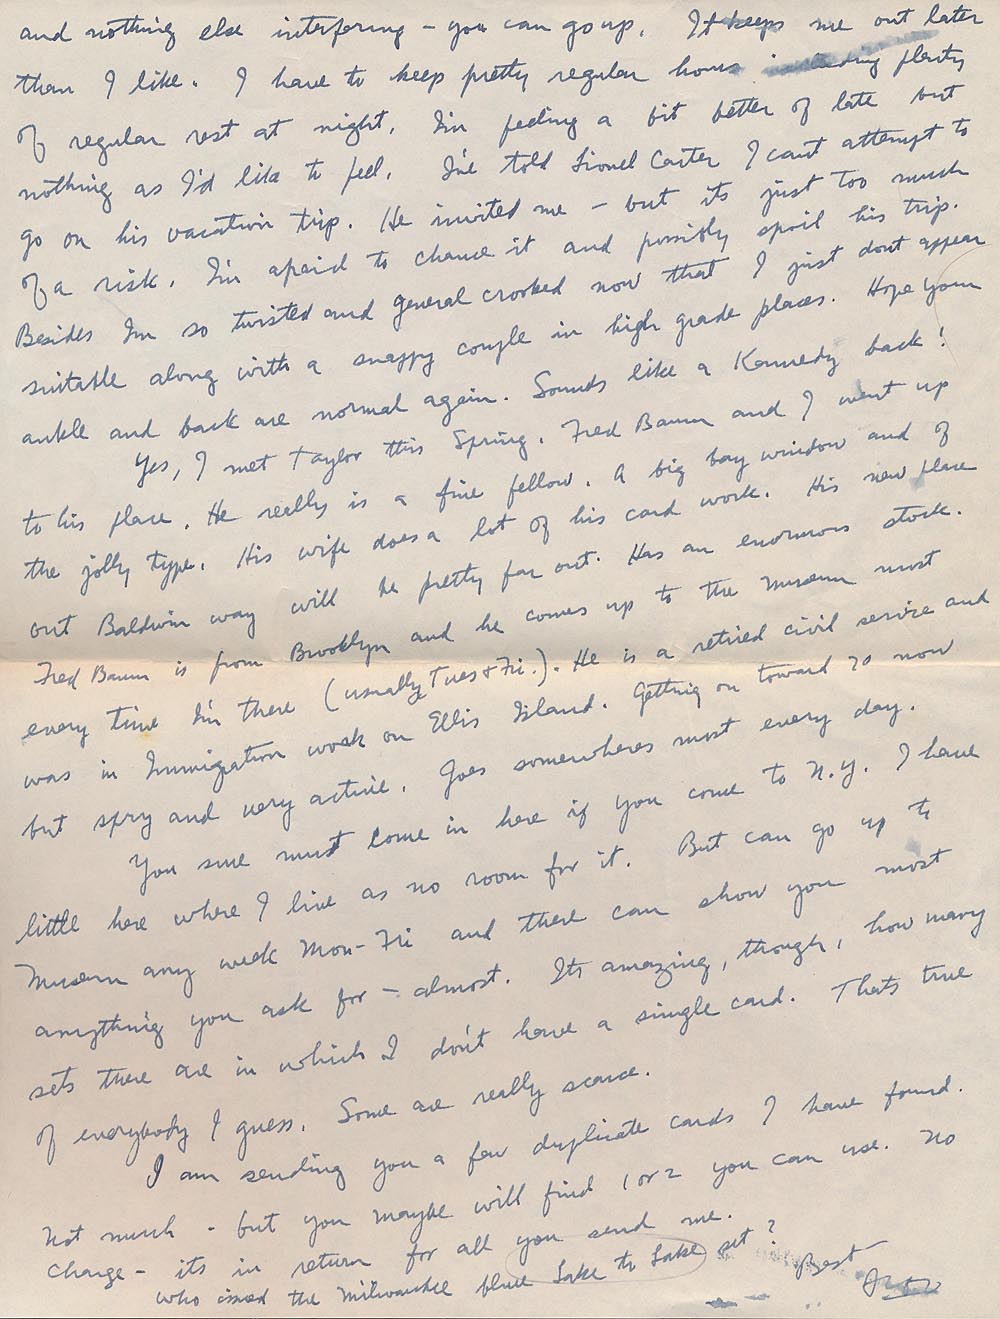 and nothing else interfering - you can go up. It keeps me out later
than I like. I have to keep pretty regular hours including plenty
of regular rest at night. I'm feeling a bit better of late but
nothing as I'd like to feel. I've told Lionel Carter I cant attempt to
go on his vacation trip. He invited me - but its just too much
of a risk. I'm afraid to chance it and possibly spoil his trip.
Besides I'm so twisted and general crooked now that I just dont appear
suitable along with a snappy couple in high grade places. Hope your
ankle and back are normal again. Sounds like a Kennedy back!
Yes, I met Taylor this Spring. Fred Baum and I went up
to his place. He really is a fine fellow. A big bay window and of
the jolly type. His wife does a lot of his card work. His new place
out Baldwin way will be pretty far out. Has an enormous stock.
Fred Baum is from Brooklyn and he comes up to the Museum most
every time I'm there (usually Tues & Fri.). He is a retired civil service and
was in Immigration work on Ellis Island. Getting on toward 70 now
but spry and very active. Goes somewheres most every day.
You sure must come in here if you come to N.Y. I have
little here where I live as no room for it. But can go up to
Museum any week Mon-Fri and there can show you most
anything you ask for - almost. Its amazing, though, how many
sets there are in which I don't have a single card. Thats true
of everybody I guess. Some are really scarce.
I am sending you a few duplicate cards I have found.
Not much - but you maybe will find 1 or 2 you can use. No
charge - its in return for all you send me.
who issued the Milwaukee blue Lake to Lake set?
Best